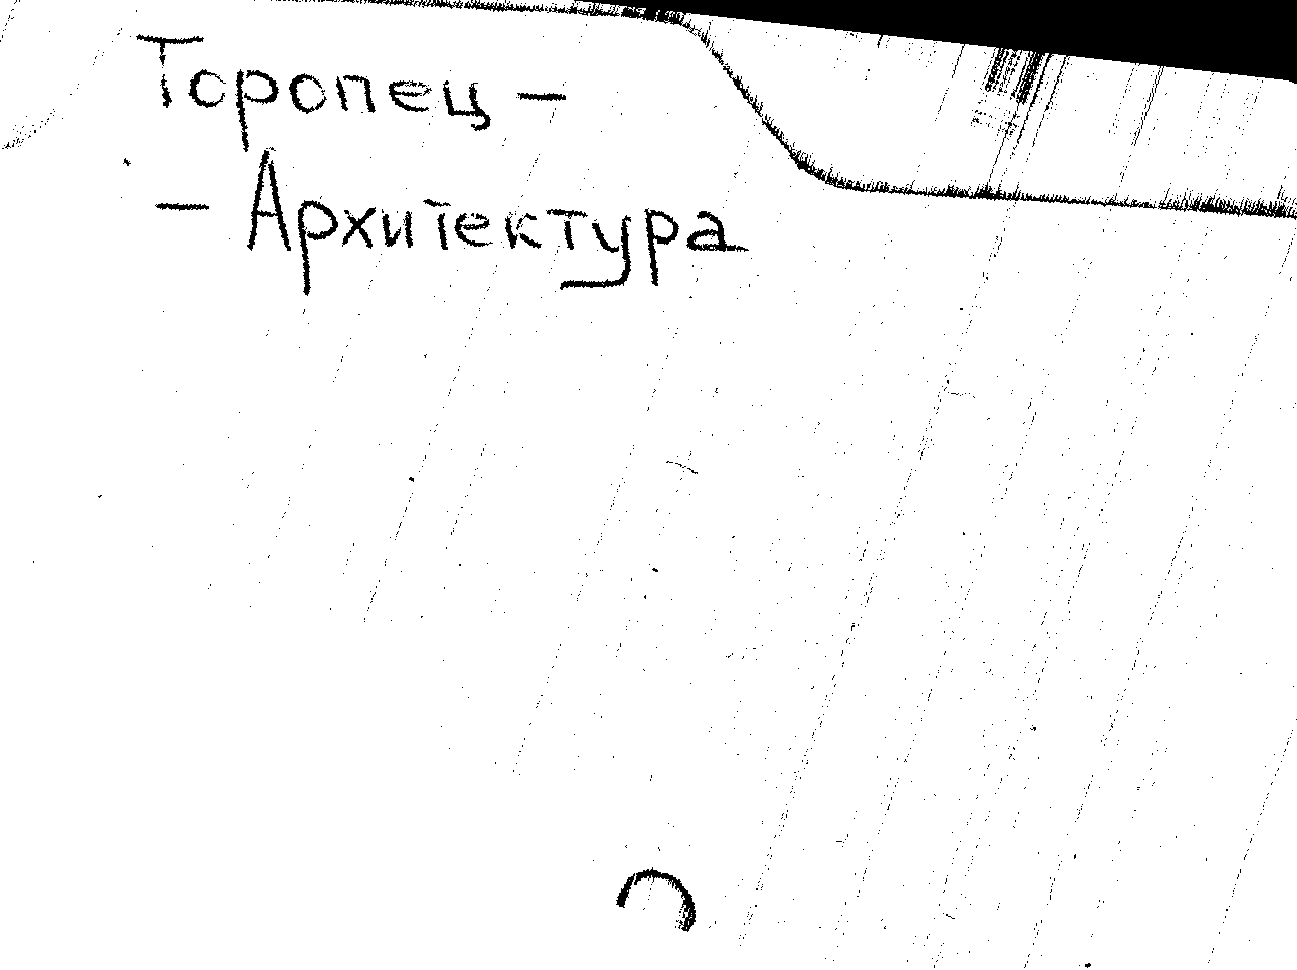 Торопец –
– Архитектура